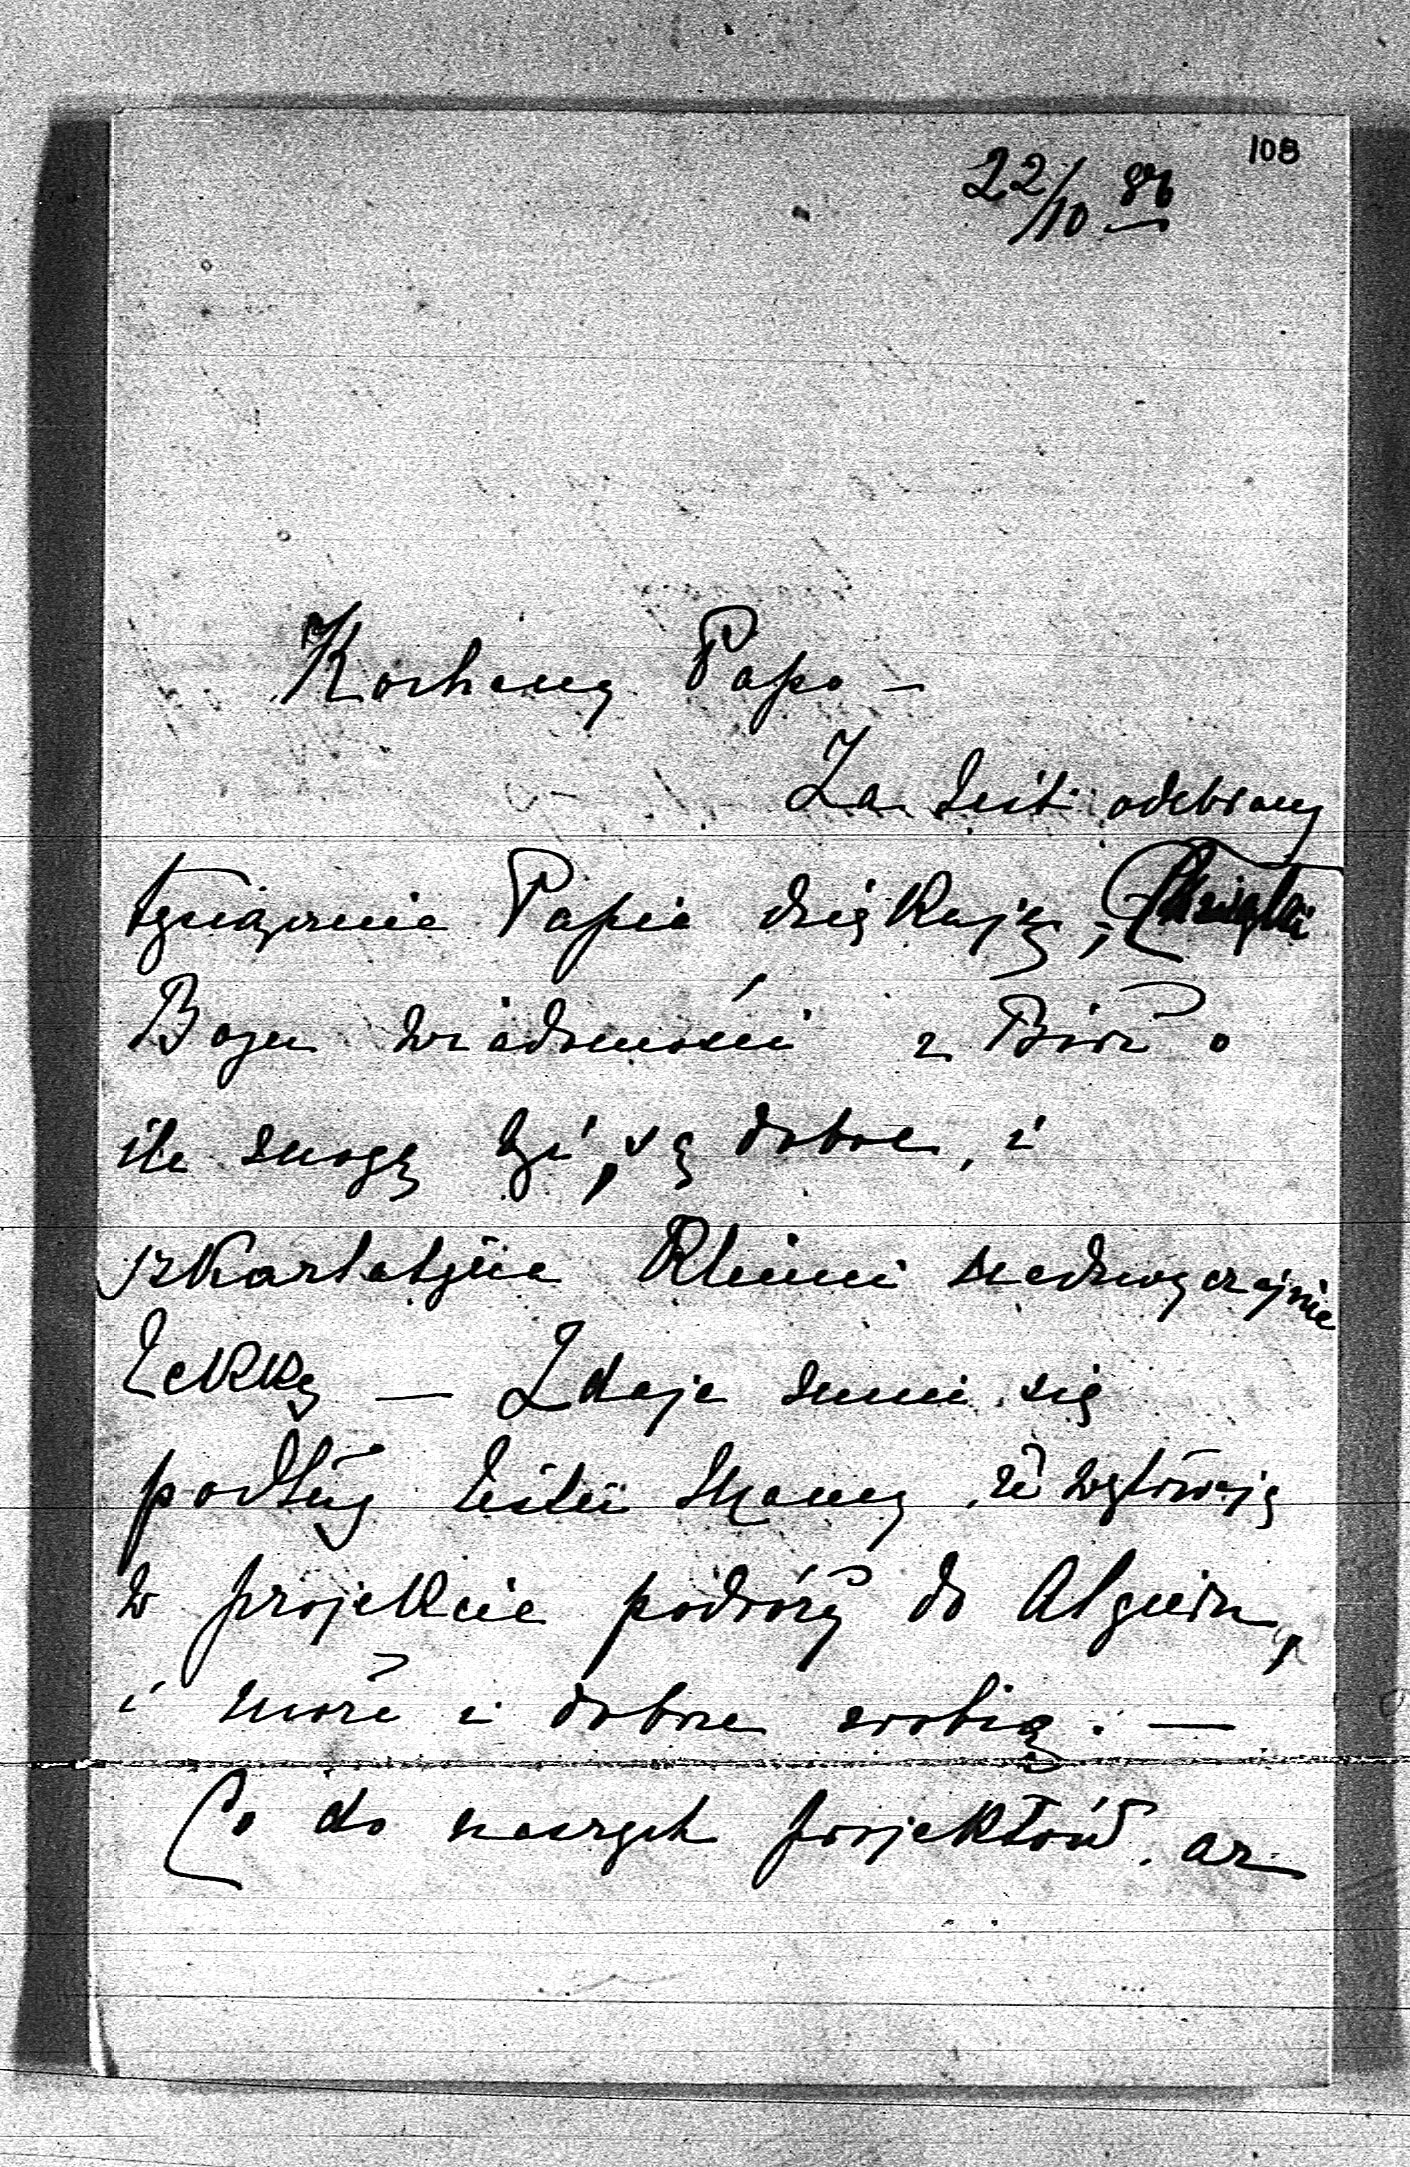 108
22/10 86
Kochany Papo –
Za list odebrany
tysiącznie Papie dziękuję,
Bogu wiadomości z Birż o
ile mogą być, są dobre, i
szkarlatyna Klimci nadzwyczajnie
lekką — Zdaje mnie się
podług listu Mamy, że wytrwają
w projekcie podróży do Algieru,
i może i dobrze zrobią. —
Co do naszych projektów. az